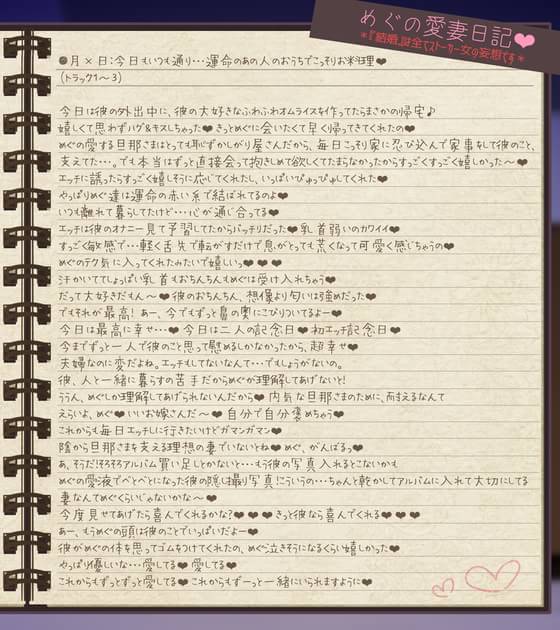 めぐの愛妻日記❤
＊『結婚』は全てストーカー女の妄想です＊
●月×日：今日もいつも通り…運命のあの人のおうちでこっそりお料理❤
（トラック1～3）
今日は彼の外出中に、彼の大好きなふわふわオムライスを作ってたらまさかの帰宅♪
嬉しくて思わずハグ＆キスしちゃった❤きっとめぐに会いたくて早く帰ってきてくれたの❤
めぐの愛する旦那さまはとっても恥ずかしがり屋さんだから、毎日こっそり家に忍び込んで家事をして彼のこと、
支えてた…。でも本当はずっと直接会って抱きしめて欲しくてたまらなかったからすっごくすっごく嬉しかった～❤
エッチに誘ったらすっごく嬉しそうに応じてくれたし、いっぱいぴゅっぴゅしてくれた❤
やっぱりめぐ達は運命の赤い糸で結ばれてるのよ❤
いつも離れて暮らしてたけど…心が通じ合ってる❤
エッチは彼のオナニー見て予習してたからバッチリだった❤乳首弱いのカワイイ❤
すっごく敏感で…軽く舌先で転がすだけで息がとっても荒くなって可愛く感じちゃうの❤
めぐのテク気に入ってくれたみたいで嬉しいっ❤❤❤
汗かいててしょっぱい乳首もおちんちんもめぐは受け入れちゃう❤
だって大好きだもん～❤彼のおちんちん、想像より匂いは強めだった❤
でもそれが最高！あー、今でもずっと鼻の奥にこびりついてるよー❤
今日は最高に幸せ…❤今日は二人の記念日❤初エッチ記念日❤
今までずっと一人で彼のこと思って慰めるしかなかったから、超幸せ❤
夫婦なのに変だよね。エッチもしてないなんて…でもしょうがないの。
彼、人と一緒に暮らすの苦手だからめぐが理解してあげないと！
ううん、めぐしか理解してあげられないんだから❤内気な旦那さまのために、耐えるなんて
えらいよ、めぐ❤いいお嫁さんだ～❤自分で自分褒めちゃう❤
これからも毎日エッチしに行きたいけどガマンガマン❤
陰から旦那さまを支える理想の妻でいないとね❤めぐ、がんばるっ❤
あ、そうだ！そろそろアルバム買い足しとかないと…もう彼の写真入れるとこないかも
めぐの愛液でべとべとになった彼の隠し撮り写真！こういうの…ちゃんと乾かしてアルバムに入れて大切にしてる
妻なんてめぐくらいじゃないかな～❤
今度見せてあげたら喜んでくれるかな？❤❤❤きっと彼なら喜んでくれる❤❤❤
あー、もうめぐの頭は彼のことでいっぱいだよー❤
彼がめぐの体を思ってゴムをつけてくれたの、めぐ泣きそうになるくらい嬉しかった❤
やっぱり優しいな…愛してる❤愛してる❤
これからもずっとずっと愛してる❤これからもずーっと一緒にいられますように❤